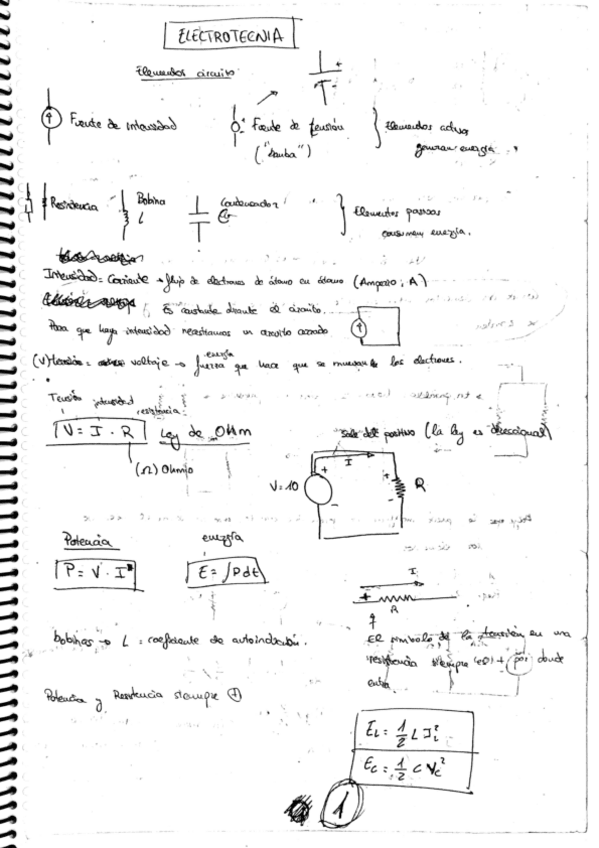 ELECTROTECNIA
Elementos circuito
Fuente de intensidad
Fuente de tensión
Elementos activos
generan energía
Resistencia
Bobina
L
Condensador
C
Elementos pasivos
consumen energía.
Intensidad = Corriente → flujo de electrones de átomo en átomo (Amperio; A)
Es constante durante el circuito.
Para que haya intensidad necesitamos un circuito cerrado
(V) tensión = voltaje → fuerza que hace que se muevan los electrones.
energía
Tensión intensidad
resistencia
V = I · R Ley de Ohm
(Ω) Ohmio
Sale del positivo (la ley es direccional)
I
V = 10
+
-
+
-
R
Potencia
energía
P = V · I
E = ∫P dt
I
+
R
El símbolo de la tensión en una
resistencia siempre (el) + por donde
entra
bobinas → L = coeficiente de autoinducción.
Potencia y Resistencia siempre +
E_L = 1/2 L I_L²
E_C = 1/2 C V_C²
1